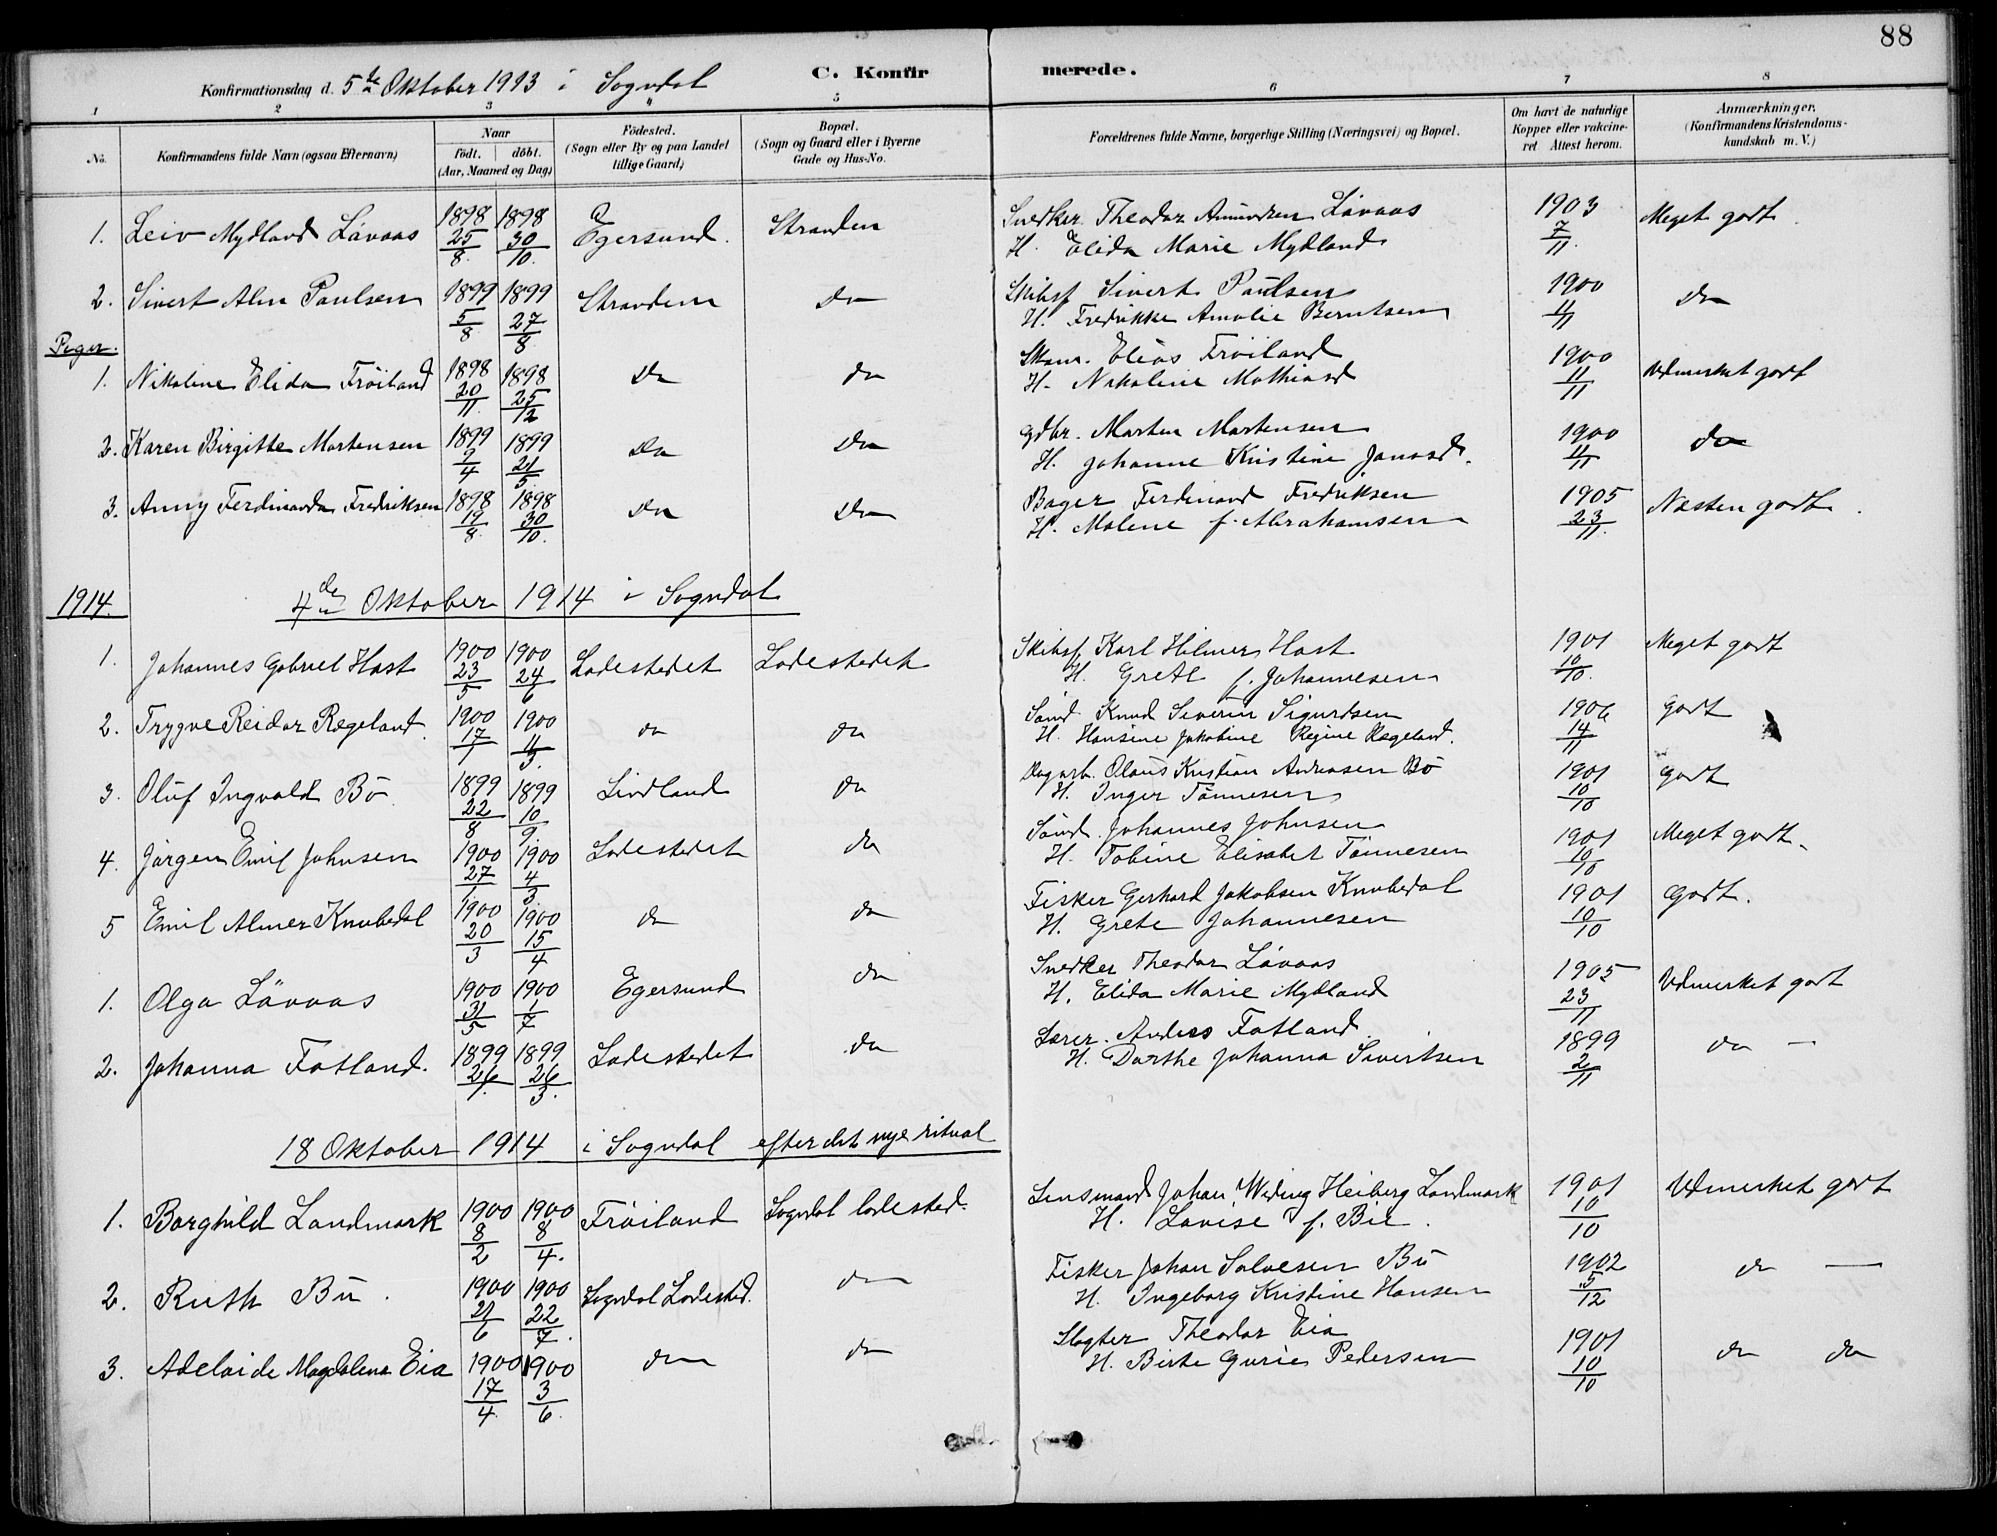 88
Konfirmationsdag d. 5te Oktober 1913 i Sogndal C. Konfirmerede.
1 2 3 4 5 6 7 8
No. Konfirmandens fulde Navn (ogsaa Efternavn) Naar födt. döbt. (Aar, Maaned og Dag) Födested. (Sogn eller By og paa Landet tillige Gaard) Bopæl. (Sogn og Gaard eller i Byerne Gade og Hus-No. Forældrenes fulde Navne, borgerlige Stilling (Næringsvei) og Bopæl. Om havt de naturlige Kopper eller vakcineret Attest herom. Anmærkninger. (Konfirmandens Kristendomskundskab m. V.)
1. Leiv Mydland Lövaas 1898 25/8 1898 30/10 Egersund. Stranden Snedker Theodor Amundsen Lövaas H. Elida Marie Mydland 1903 7/11. Meget godt.
2. Sivert Alm Paulsen 1899 5/8 1899 27/8 Stranden do Skibsf. Sivert Paulsen H. Fredrikke Amalie Berntsen 1900 11/11 do
Piger.
1. Nikoline Elida Fröiland 1898 20/11. 1898 25/12 do do Skom. Elias Fröiland H. Nikoline Mathiasd 1900 11/11 Udmerket godt
2. Karen Birgitte Martensen 1899 9/4 1899 21/5 do do Gdbr. Marten Martensen H. Johanne Kristine Jonasd. 1900 11/11 do
3. Anny Ferdinanda Fredriksen 1898 19/8. 1898 30/10. do do Bager Ferdinand Fredriksen H. Malene f. Abrahamsen 1905 23/11. Næsten godt.
1914. 4de Oktober 1914 i Sogndal
1. Johannes Gabriel Hast 1900 23/5 1900 24/6 Ladestedet Ladestedet Skibsf. Karl Hilmer Hast H. Grete f. Johannesen 1901 10/10. Meget godt
2. Trygve Reidar Rægeland. 1900 17/1 1900 11/3. do do Sömd. Knud Severin Sigurdsen H. Hansine Jakobine Regine Rægeland. 1906 14/11 godt
3. Oluf Ingvald Bö. 1899 22/8 1899 10/9. Lindland do Dagarb. Olaus Kristian Andreasen Bö H. Inger Tönnesen 1901 10/10 godt
4. Jörgen Emil Johnsen 1900 27/1 1900 4/3. Ladestedet do Sömd. Johannes Johnsen H. Tobine Elisabet Tönnesen 1901 10/10 Meget godt.
5 Emil Almer Knubedal 1900 20/3 1900 15/4 do do Fisker Gerhard Jakobsen Knubedal H. Grete Johannesen 1901 10/10 Godt.
1. Olga Lövaas 1900 31/5 1900 1/7 Egersund do Snedker Theodor Lövaas H. Elida Marie Mydland 1905 23/11 Udmerket godt
2. Johanna Fotland. 1899 26/1. 1899 26/3. Ladestedet do Lærer. Anders Fotland. H. Dorthe Johanna Sivertsen 1899 2/11 do —
18 Oktober 1914 i Sogndal efter det nye ritual
1. Borghild Landmark 1900 8/2 1900 8/4. Fröiland Sogndal ladested. Lensmand Johan Widing Heiberg Landmark H. Lovise f. Bie. 1901 10/10 Udmerket godt
2. Ruth Bö. 1900 21/6 1900 22/7. Sogndal Ladested. do Fisker Johan Salvesen Bö H. Ingeborg Kristine Hansen 1902 5/12 do —
3. Adelaide Magdalena Eia 1900 17/4. 1900 3/6. do do Slagter Theodor Eia H. Birte Gurie Pedersen 1901 10/10 do do